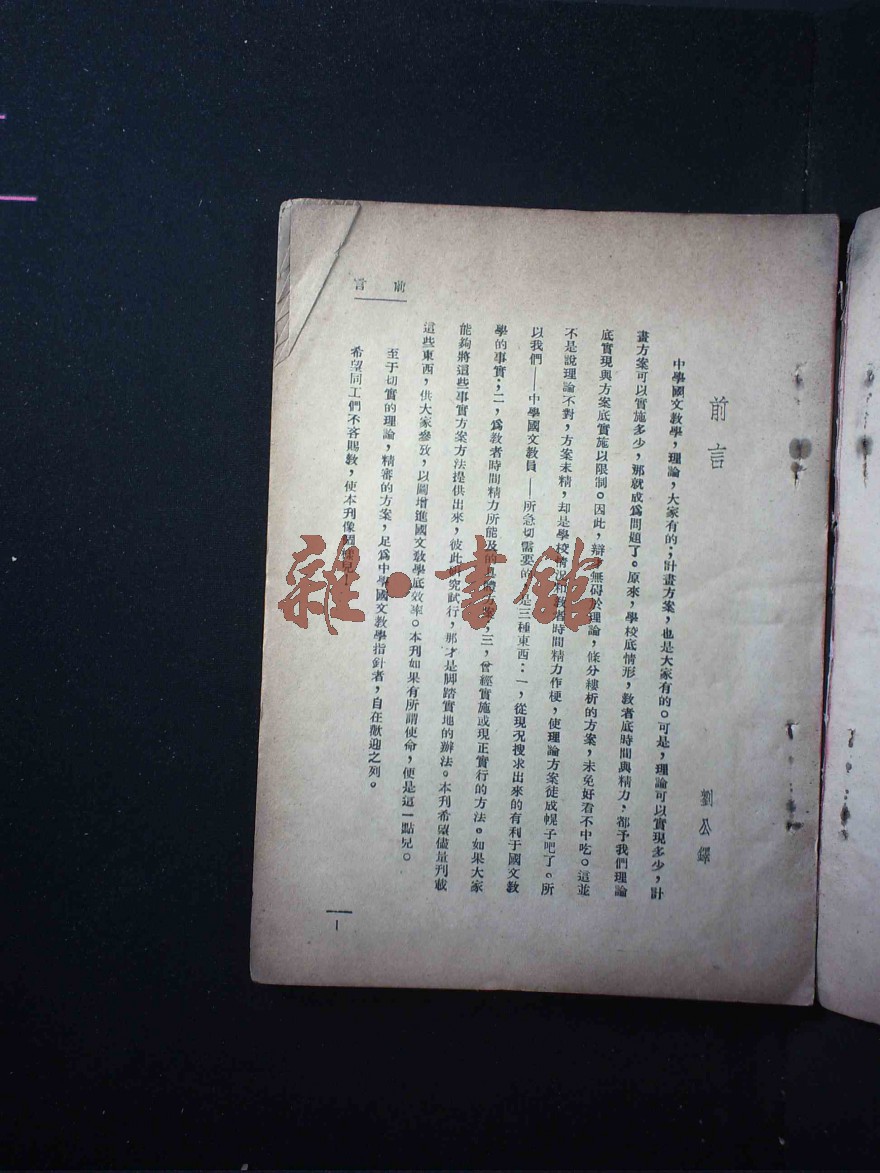 前言
劉公鐸
中學國文教學，理論，大家有的；計畫方案，也是大家有的。可是，理論可以實現多少，計
畫方案可以實施多少，那就成爲問題了。原來，學校底情形，教者底時間與精力，都予我們理論
底實現與方案底實施以限制。因此，辯 無碍於理論，條分縷析的方案，未免好看不中吃。這並
不是說理論不對，方案未精，却是學校情况和教者時間精力作梗，使理論方案徒成幌子吧了。所
以我們——中學國文教員——所急切需要的 是三種東西：一，從現況搜求出來的有利于國文教
學的事實；二，爲教者時間精力所能及的具體方案；三，曾經實施或現正實行的方法。如果大家
能夠將這些事實方案方法提供出來，彼此研究試行，那才是脚踏實地的辦法。本刊希望儘量刊載
這些東西，供大家參攷，以圖增進國文教學底效率。本刊如果有所謂使命，便是這一點兒。
至于切實的理論，精審的方案，足爲中學國文教學指針者，自在歡迎之列。
希望同工們不吝賜教，使本刊像
前言
1
雜·書館